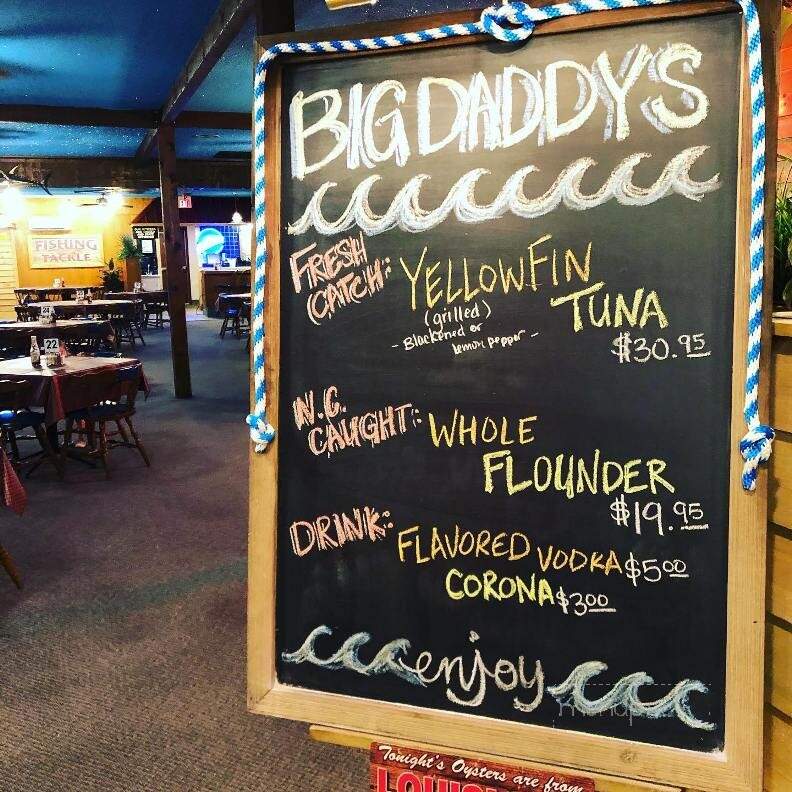 BIG DADDY'S
FRESH
CATCH:
YELLOWFIN
(grilled)
TUNA
- Blackened or
lemon pepper -
$30.95
N.C.
CAUGHT:
WHOLE
FLOUNDER
$19.95
DRINK:
FLAVORED VODKA $5.00
CORONA $3.00
enjoy
Tonight's Oysters are from
FISHING
TACKLE
24
22